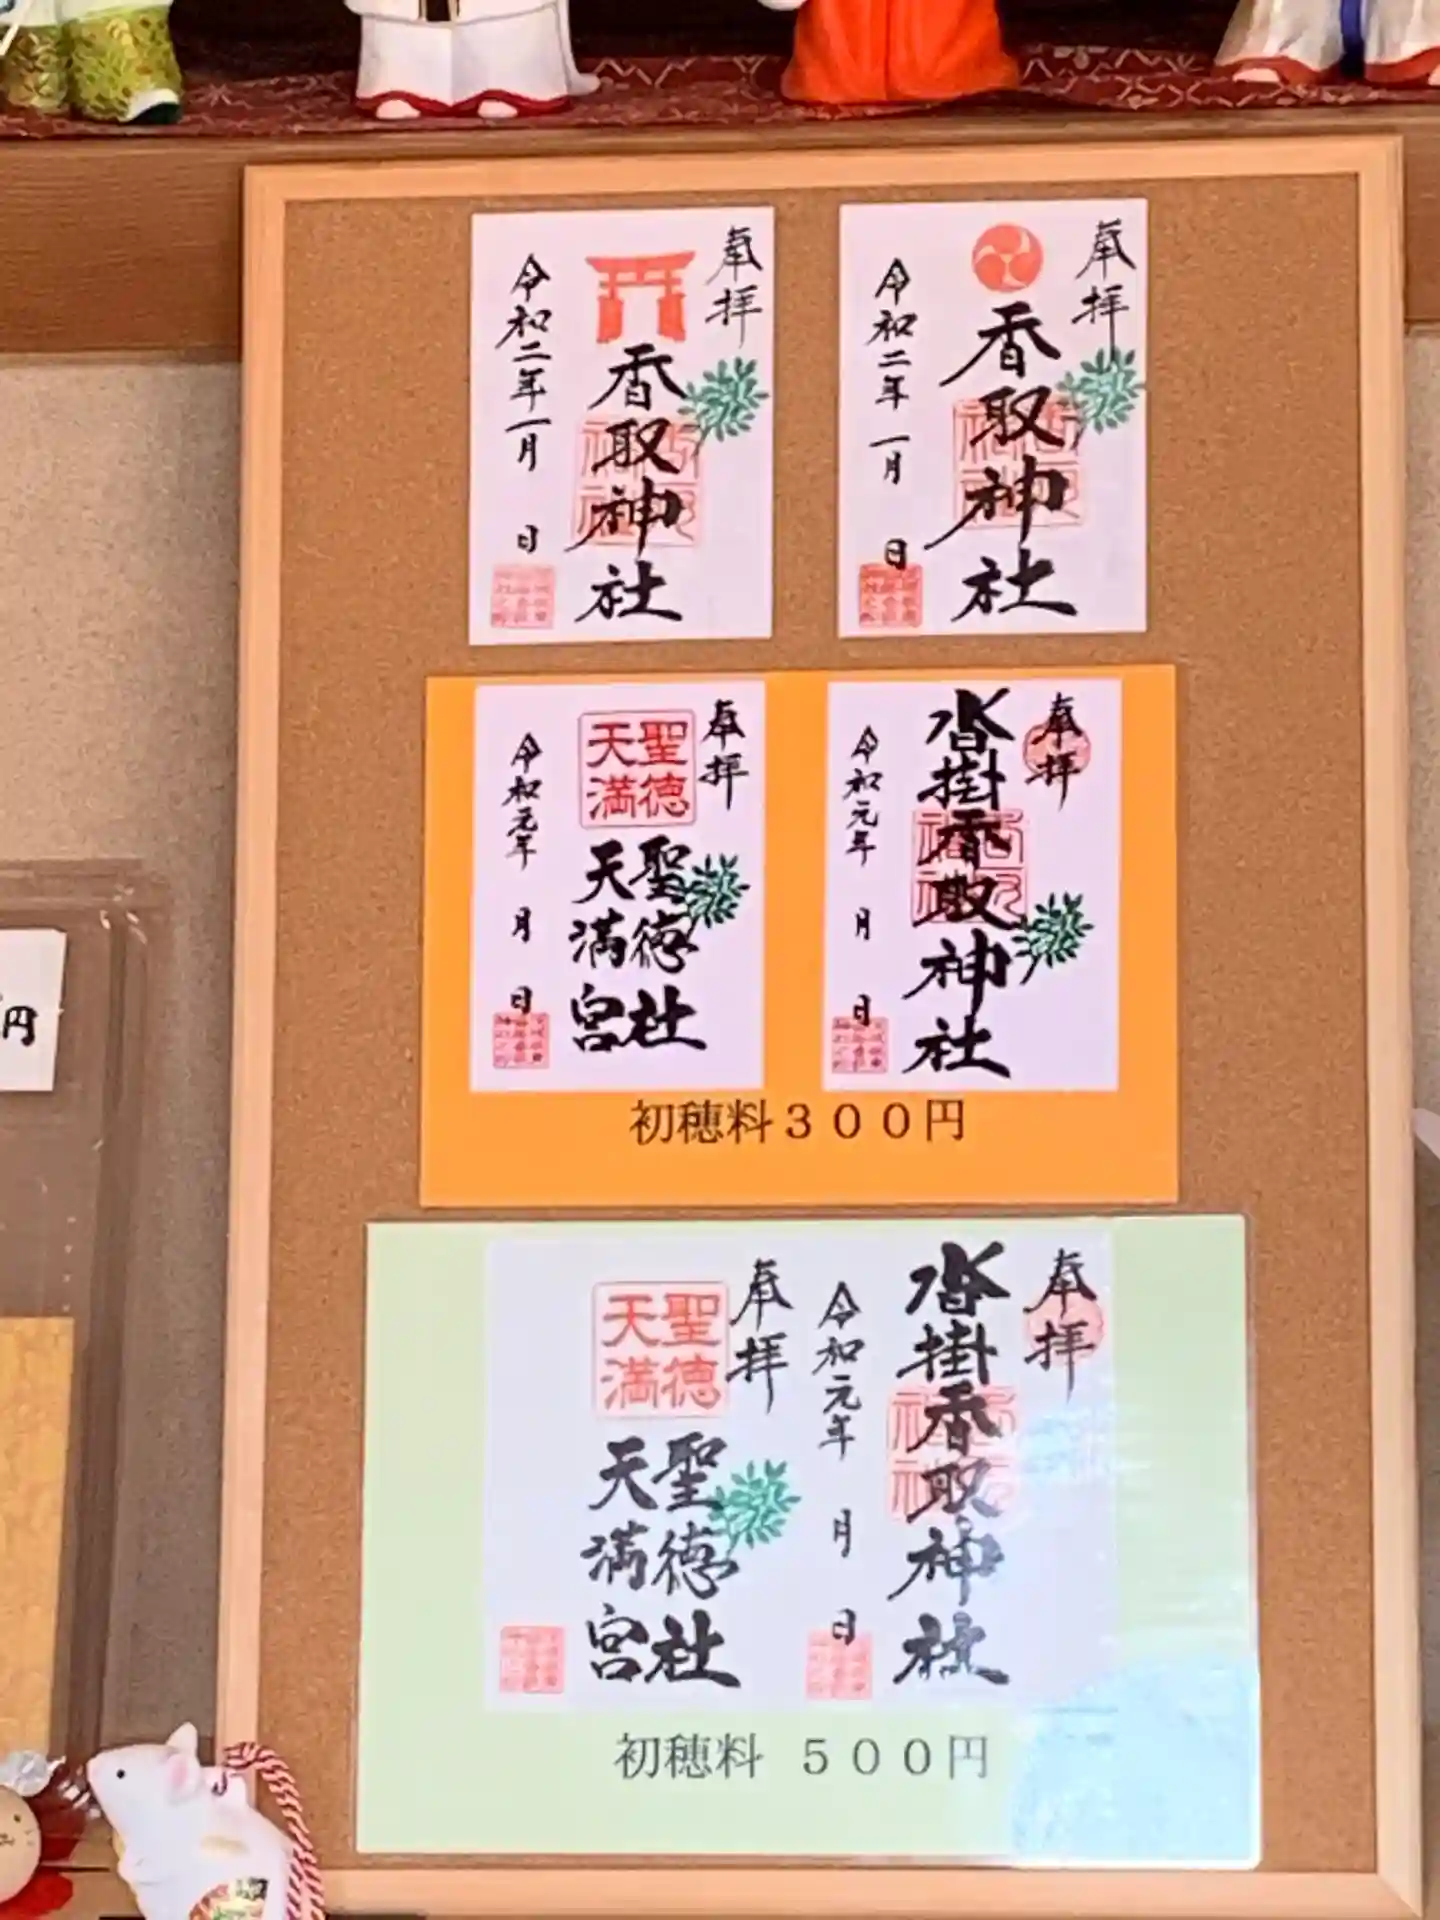 奉拝
香取神社
令和二年一月 日
奉拝
香取神社
令和二年 一月 日
奉拝
聖徳
天満
聖徳社
天満宮
令和元年 月 日
奉拝
沓掛香取神社
令和元年 月 日
初穂料300円
奉拝
沓掛香取神社
令和元年 月 日
奉拝
聖徳
天満
聖徳社
天満宮
初穂料 500円
円